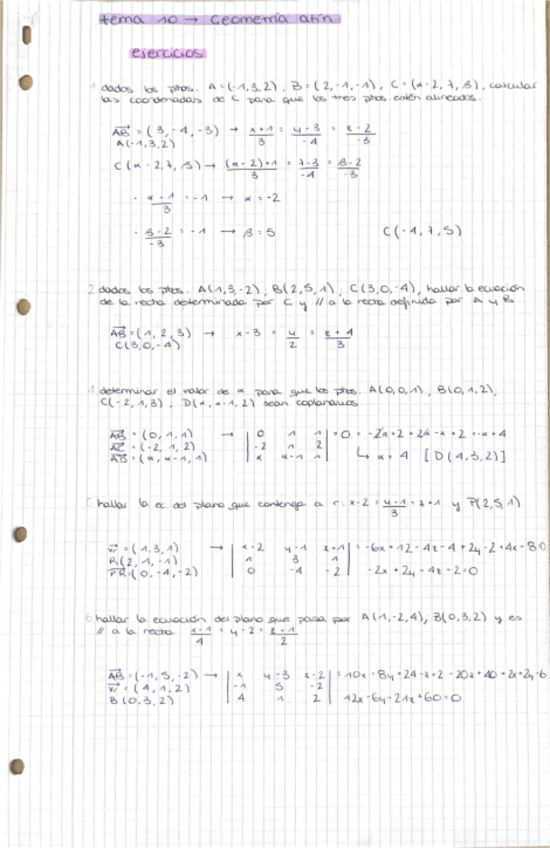 tema 10 → Geometría afín
ejercicios
1 dados los ptos. A=(-1,3,2), B=(2,-1,-1), C=(α-2,7,β), calcular
las coordenadas de C para que los tres ptos. estén alineados.
AB = (3,-4,-3) → x+1/3 = y-3/-4 = z-2/-3
A(-1,3,2)
C(α-2,7,β) → (α-2)+1/3 = 7-3/-4 = β-2/-3
· α-1/3 = -1 → α=-2
· β-2/-3 = -1 → β=5 C(-4,7,5)
2 dados los ptos. A(1,3,-2), B(2,5,1), C(3,0,-4), hallar la ecuación
de la recta determinada por C y // a la recta definida por A y B.
AB=(1,2,3) → x-3 = y/2 = z+4/3
C(3,0,-4)
determinar el valor de α para que los ptos. A(0,0,1), B(0,1,2),
C(-2,1,3), D(α,α-1,2) sean coplanarios
AB=(0,1,1) → | 0 1 1 | =0 = -2α+2+2α-α+2 =-α+4
AC=(-2,1,2) | -2 1 2 |
AD=(α,α-1,1) | α α-1 1 | ↳ α=4 [D(4,3,2)]
5 hallar la ec. del plano que contenga a r: x-2 = y-1/3 = z+1 y P(2,5,1)
=(1,3,1) → | x-2 y-1 z+1 | = -6x+12-4z-4+2y-2+4x-8=0
(2,1,-1) | 1 3 1 |
=(0,-4,-2) | 0 -4 -2 | -2x+2y-4z-2=0
6 hallar la ecuación del plano que pasa por A(1,-2,4), B(0,3,2) y es
// a la recta x-1/4 = y-2 = z+1/2
AB=(-1,5,-2) → | x y-3 z-2 | =10x-8y+24-z+2-20z+40+2x+2y-6
=(4,1,2) | -1 5 -2 |
B(0,3,2) | 4 1 2 | 12x-6y-21z+60=0